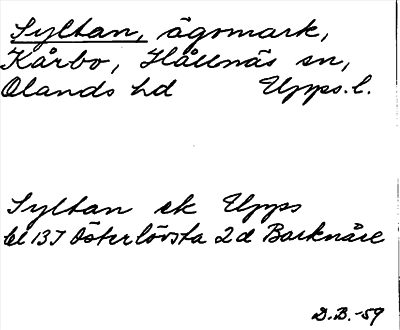 Syltan, ägomark,
Kårbo, Hållnäs sn,
Olands hd Upps. l.
Syltan ek Upps
bl 13I Österlövsta 2d Barknåre
D.B. -59